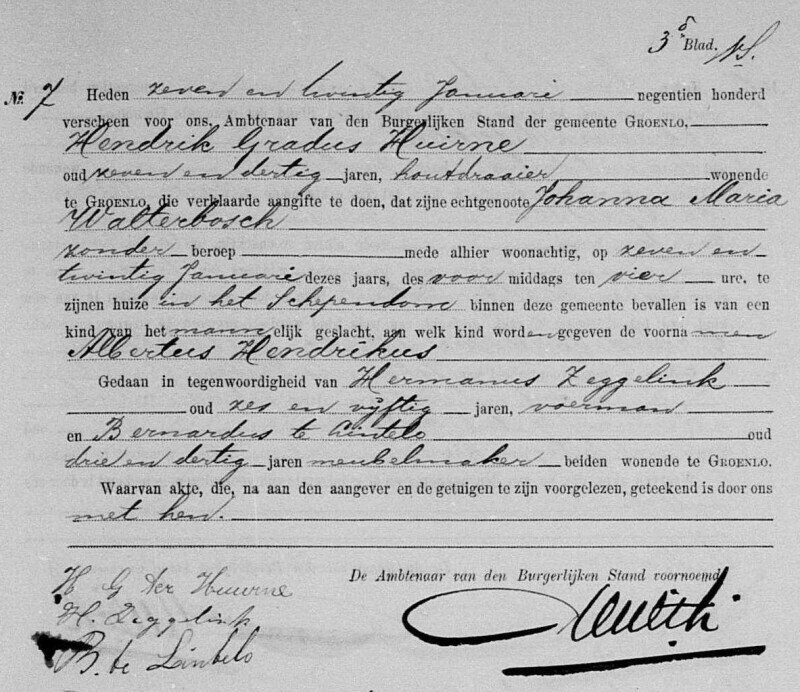 3e Blad.
No. 7 Heden zeven en twintig Januari negentien honderd
verscheen voor ons, Ambtenaar van den Burgerlijken Stand der gemeente GROENLO,
Hendrik Gradus Huirne
oud zeven en dertig jaren, houtdraaier wonende
te GROENLO, die verklaarde aangifte te doen, dat zijne echtgenoote Johanna Maria
Walterbosch
zonder beroep mede alhier woonachtig, op zeven en
twintig Januari dezes jaars, des voor middags ten vier ure, te
zijnen huize in het Schependom binnen deze gemeente bevallen is van een
kind van het mannelijk geslacht, aan welk kind worden gegeven de voornamen
Albertus Hendrikus
Gedaan in tegenwoordigheid van Hermanus Zeggelink
oud zes en vijftig jaren, voerman
en Bernardus te Lintelo oud
drie en dertig jaren meubelmaker beiden wonende te GROENLO.
Waarvan akte, die, na aan den aangever en de getuigen te zijn voorgelezen, geteekend is door ons
met hen.
De Ambtenaar van den Burgerlijken Stand voornoemd
H G ter Huurne
H. Zeggelink
B. te Lintelo